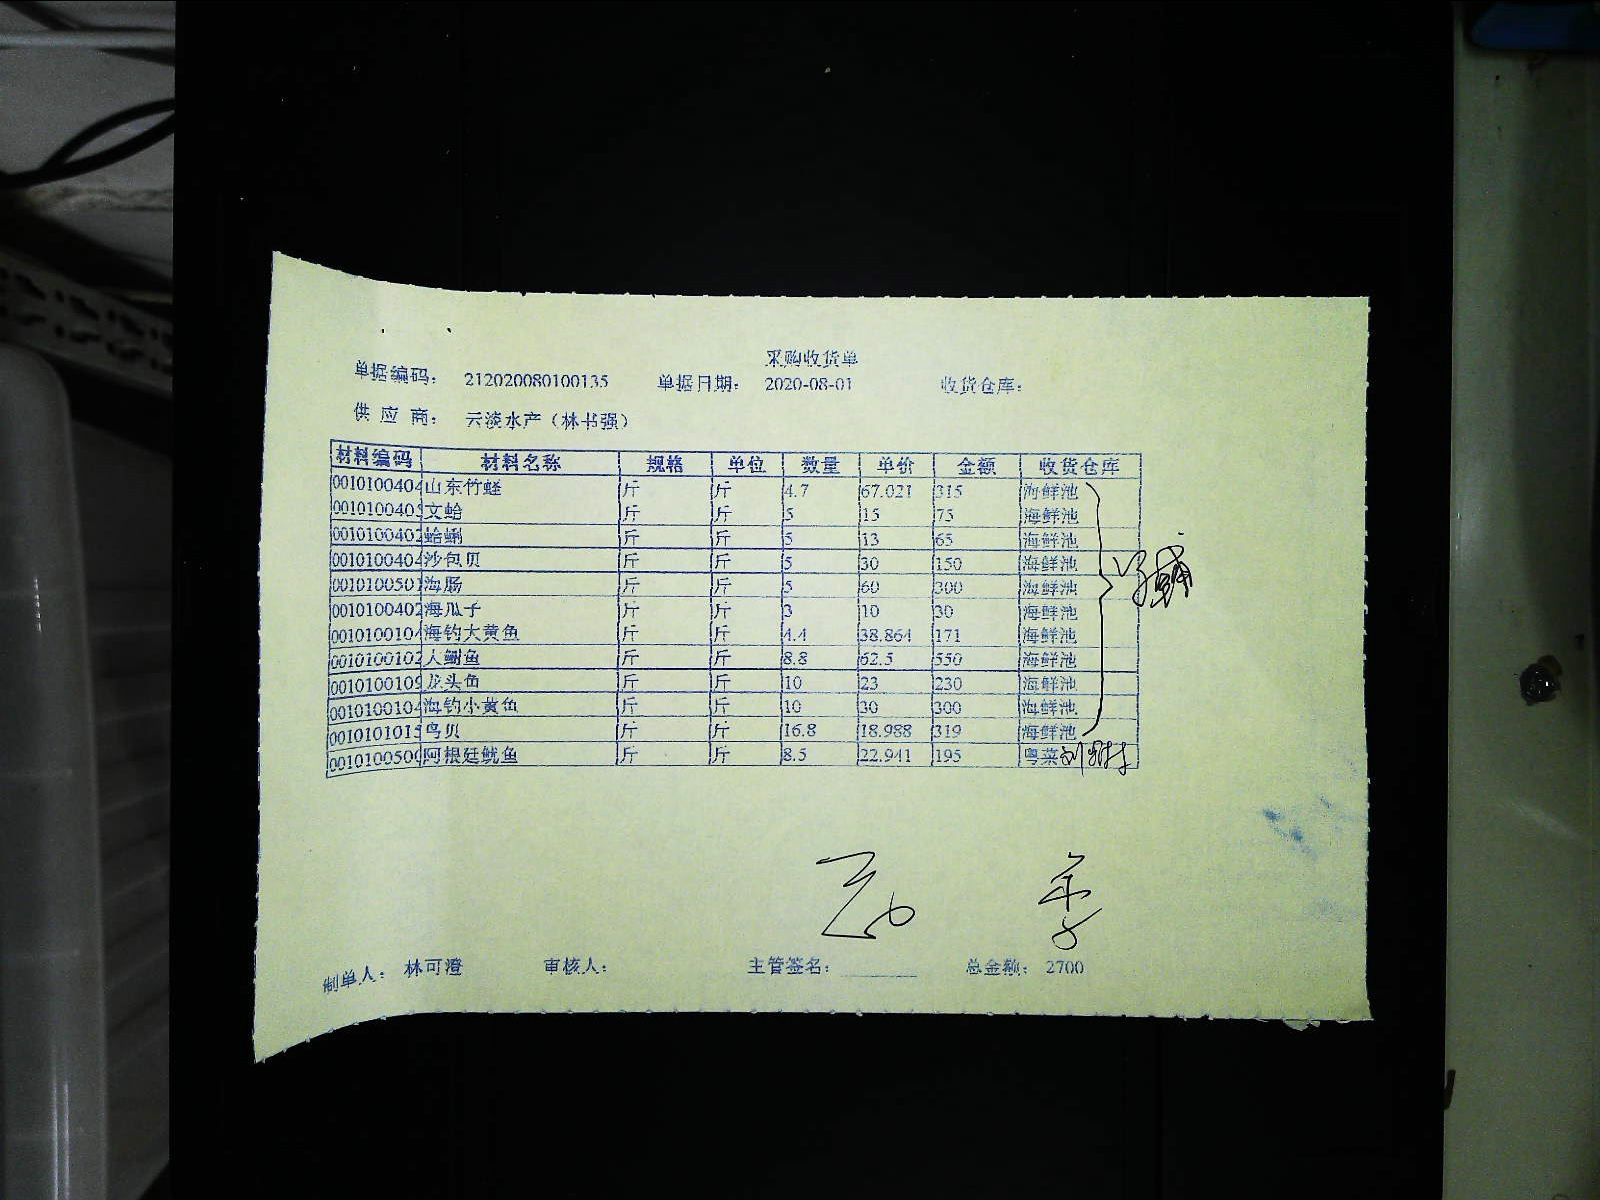 采购收货单
单据编码: 212020080100135 单据日期: 2020-08-01 收货仓库:
供 应 商: 云淡水产（林书强）
材料编码 材料名称 规格 单位 数量 单价 金额 收货仓库
0010100404 山东竹蛏 斤 斤 4.7 67.021 315 海鲜池
001010040 文蛤 斤 斤 5 15 75 海鲜池
0010100402 蛤蜊 斤 斤 5 13 65 海鲜池
0010100404 沙包贝 斤 斤 5 30 150 海鲜池
001010050 海肠 斤 斤 5 60 300 海鲜池
0010100402 海瓜子 斤 斤 3 10 30 海鲜池
0010100104 海钓大黄鱼 斤 斤 4.4 38.864 171 海鲜池
0010100102 斤 斤 8.8 62.5 550 海鲜池
0010100109 龙头鱼 斤 斤 10 23 230 海鲜池
0010100104 海钓小黄鱼 斤 斤 10 30 300 海鲜池
001010101 鸟贝 斤 斤 16.8 18.988 319 海鲜池
001010050 阿根廷鱿鱼 斤 斤 8.5 22.941 195 粤菜
制单人: 林可澄 审核人: 主管签名: 总金额: 2700